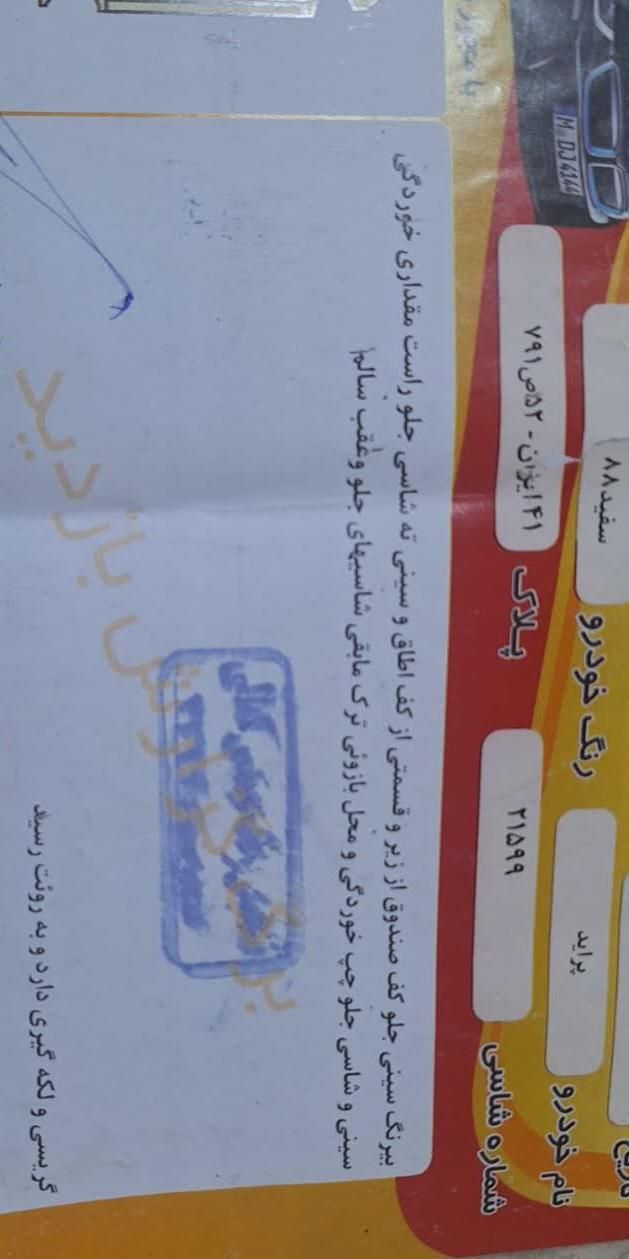 M DJ 4144
رنگ خودرو
سفید ۸۸
نام خودرو
پراید
پلاک
۴۱ ایران - ۵۲ص۷۹۱
شماره شاسی
۲۱۵۹۹
بیرنگ سینی جلو کف صندوق از زیر و قسمتی از کف اطاق و سینی ته شاسی جلو راست مقداری خوردگی
سینی و شاسی جلو چپ خوردگی و محل بازوئی ترک مابقی شاسیهای جلو وعقب سالم
گریسی و لکه گیری دارد و به روئت رسید
برگ گزارش بازدید